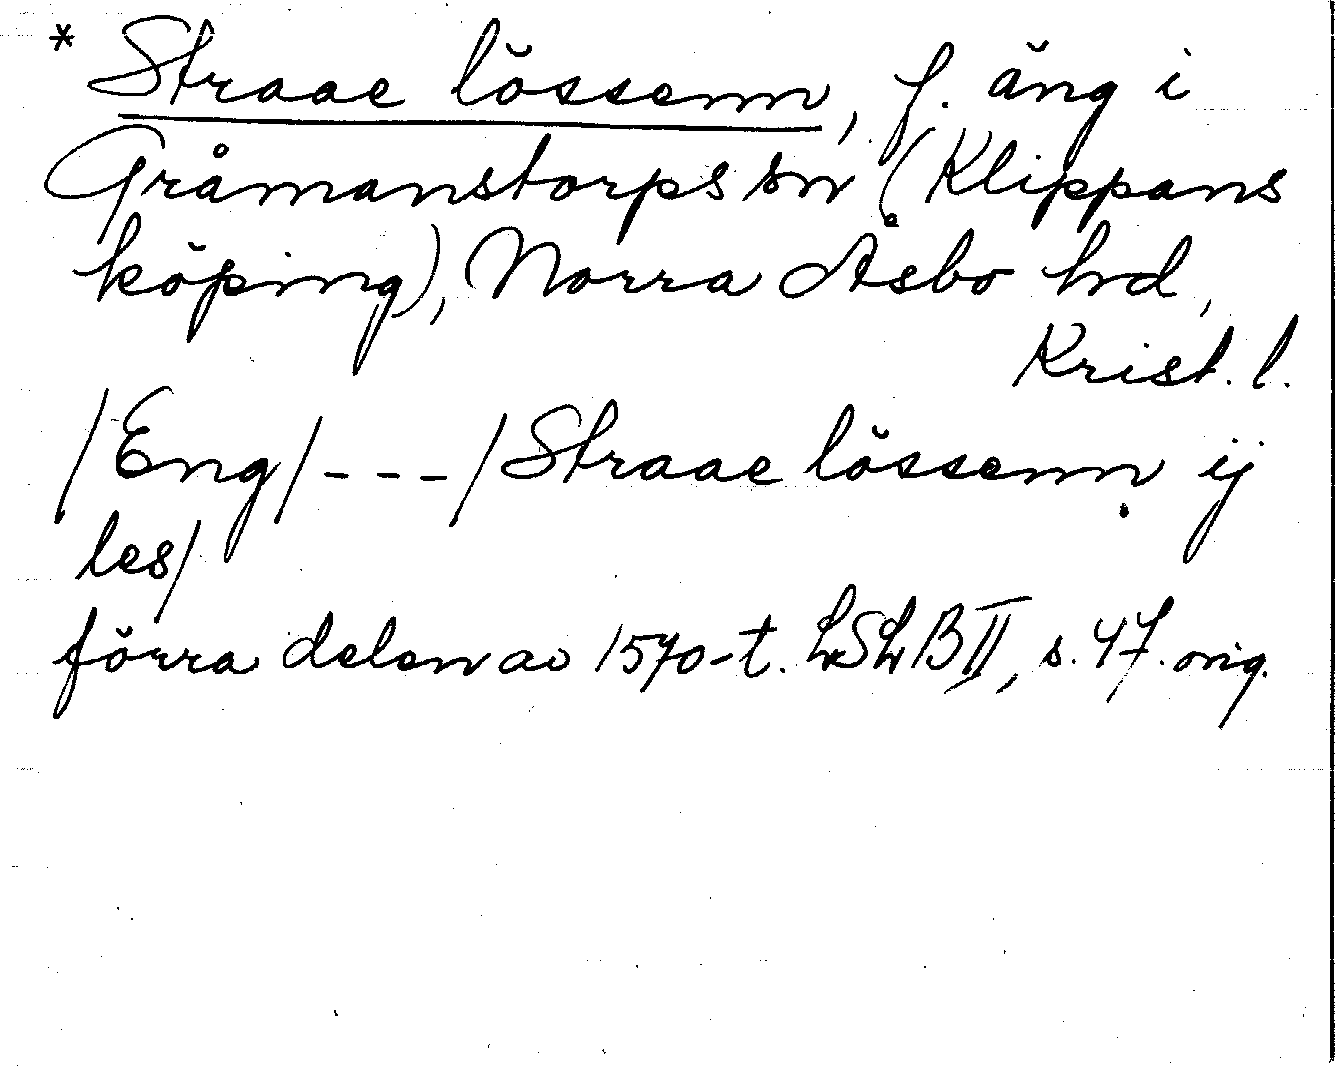 * Straae lössenn, f. äng i
Gråmanstorps sn (Klippans
köping), Norra Åsbo hd,
Krist. l.
/Eng/ - - - /Straae lössenn ij
les/
förra delen av 1570-t. LSLB II, s. 47. orig.